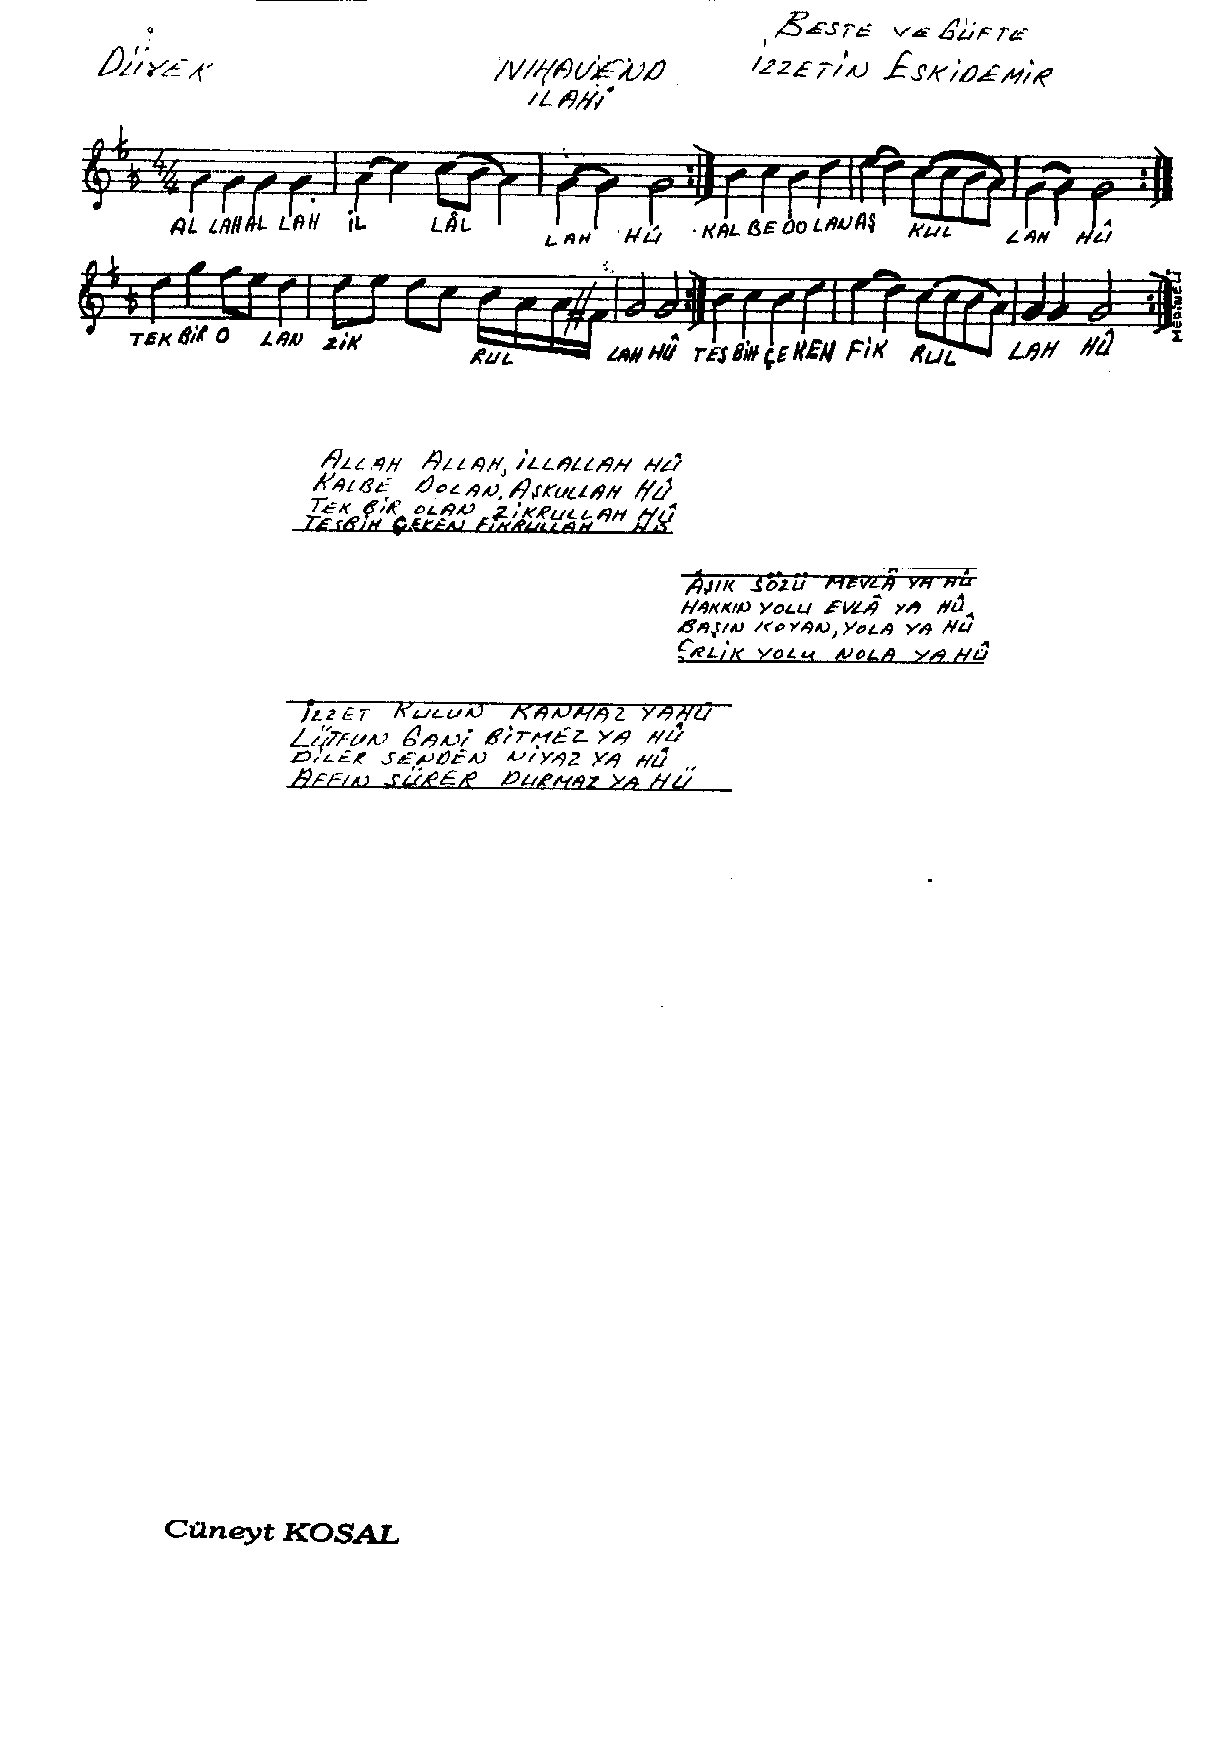 DÜYEK
NİHAVEND
İLAHİ
BESTE VE GÜFTE
İZZETİN ESKİDEMİR
4/4
AL LAH AL LAH İL LÂL LAH HÛ KAL BE DO LAN AŞ KUL LAH HÛ
TEK BİR O LAN ZİK RUL LAH HÛ TES BİH ÇE KEN FİK RUL LAH HÛ
ALLAH ALLAH, İLLALLAH HÛ
KALBE DOLAN, AŞKULLAH HÛ
TEK BİR OLAN ZİKRULLAH HÛ
TESBİH ÇEKEN FİKRULLAH HÛ
AŞIK SÖZÜ MEVLÂ YA HÛ
HAKKIN YOLU EVLÂ YA HÛ
BAŞIN KOYAN, YOLA YA HÛ
ERLİK YOLU NOLA YA HÛ
İZZET KULUN KANMAZ YAHÛ
LÜTFUN GANİ BİTMEZ YA HÛ
DİLER SENDEN NİYAZ YA HÛ
AFFIN SÜRER DURMAZ YA HÜ
Cüneyt KOSAL